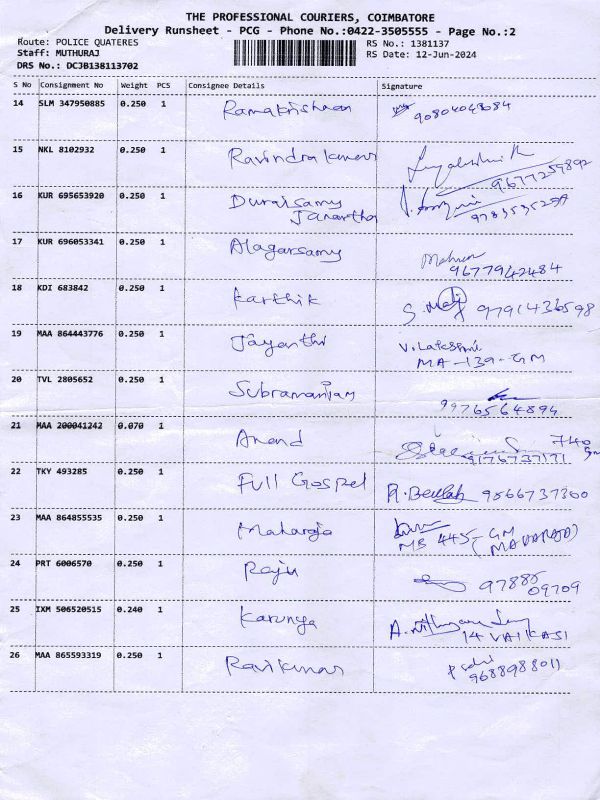 THE PROFESSIONAL COURIERS, COIMBATORE
Delivery Runsheet - PCG - Phone No.:0422-3505555 - Page No.:2
Route: POLICE QUATERES RS No.: 1381137
Staff: MUTHURAJ RS Date: 12-Jun-2024
DRS No.: DCJB138113702
S No Consignment No Weight PCS Consignee Details Signature
14 SLM 347950885 0.250 1 Ramakrishnan
15 NKL 8102932 0.250 1 Ravindrakumar
9677259892
16 KUR 695653920 0.250 1 Duraisamy
Janartha
17 KUR 696053341 0.250 1 Alagarsamy Mohnan
9677942484
18 KDI 683842 0.250 1 Karthik 9791436598
19 MAA 864443776 0.250 1 Jayanthi V. Lakshmi
MA-139-GM
20 TVL 2805652 0.250 1 Subramaniam
9976564894
21 MAA 200041242 0.070 1 Anand 740
9176737171
22 TKY 493285 0.250 1 Full Gospel R. Beulah 9566737300
23 MAA 864855535 0.250 1 Maharaja
MS 445-GM
24 PRT 6006570 0.250 1 Raju 97885
09709
25 IXM 506520515 0.240 1 Karunya
14 VAIKASI
26 MAA 865593319 0.250 1 Ravikumar
9688988011